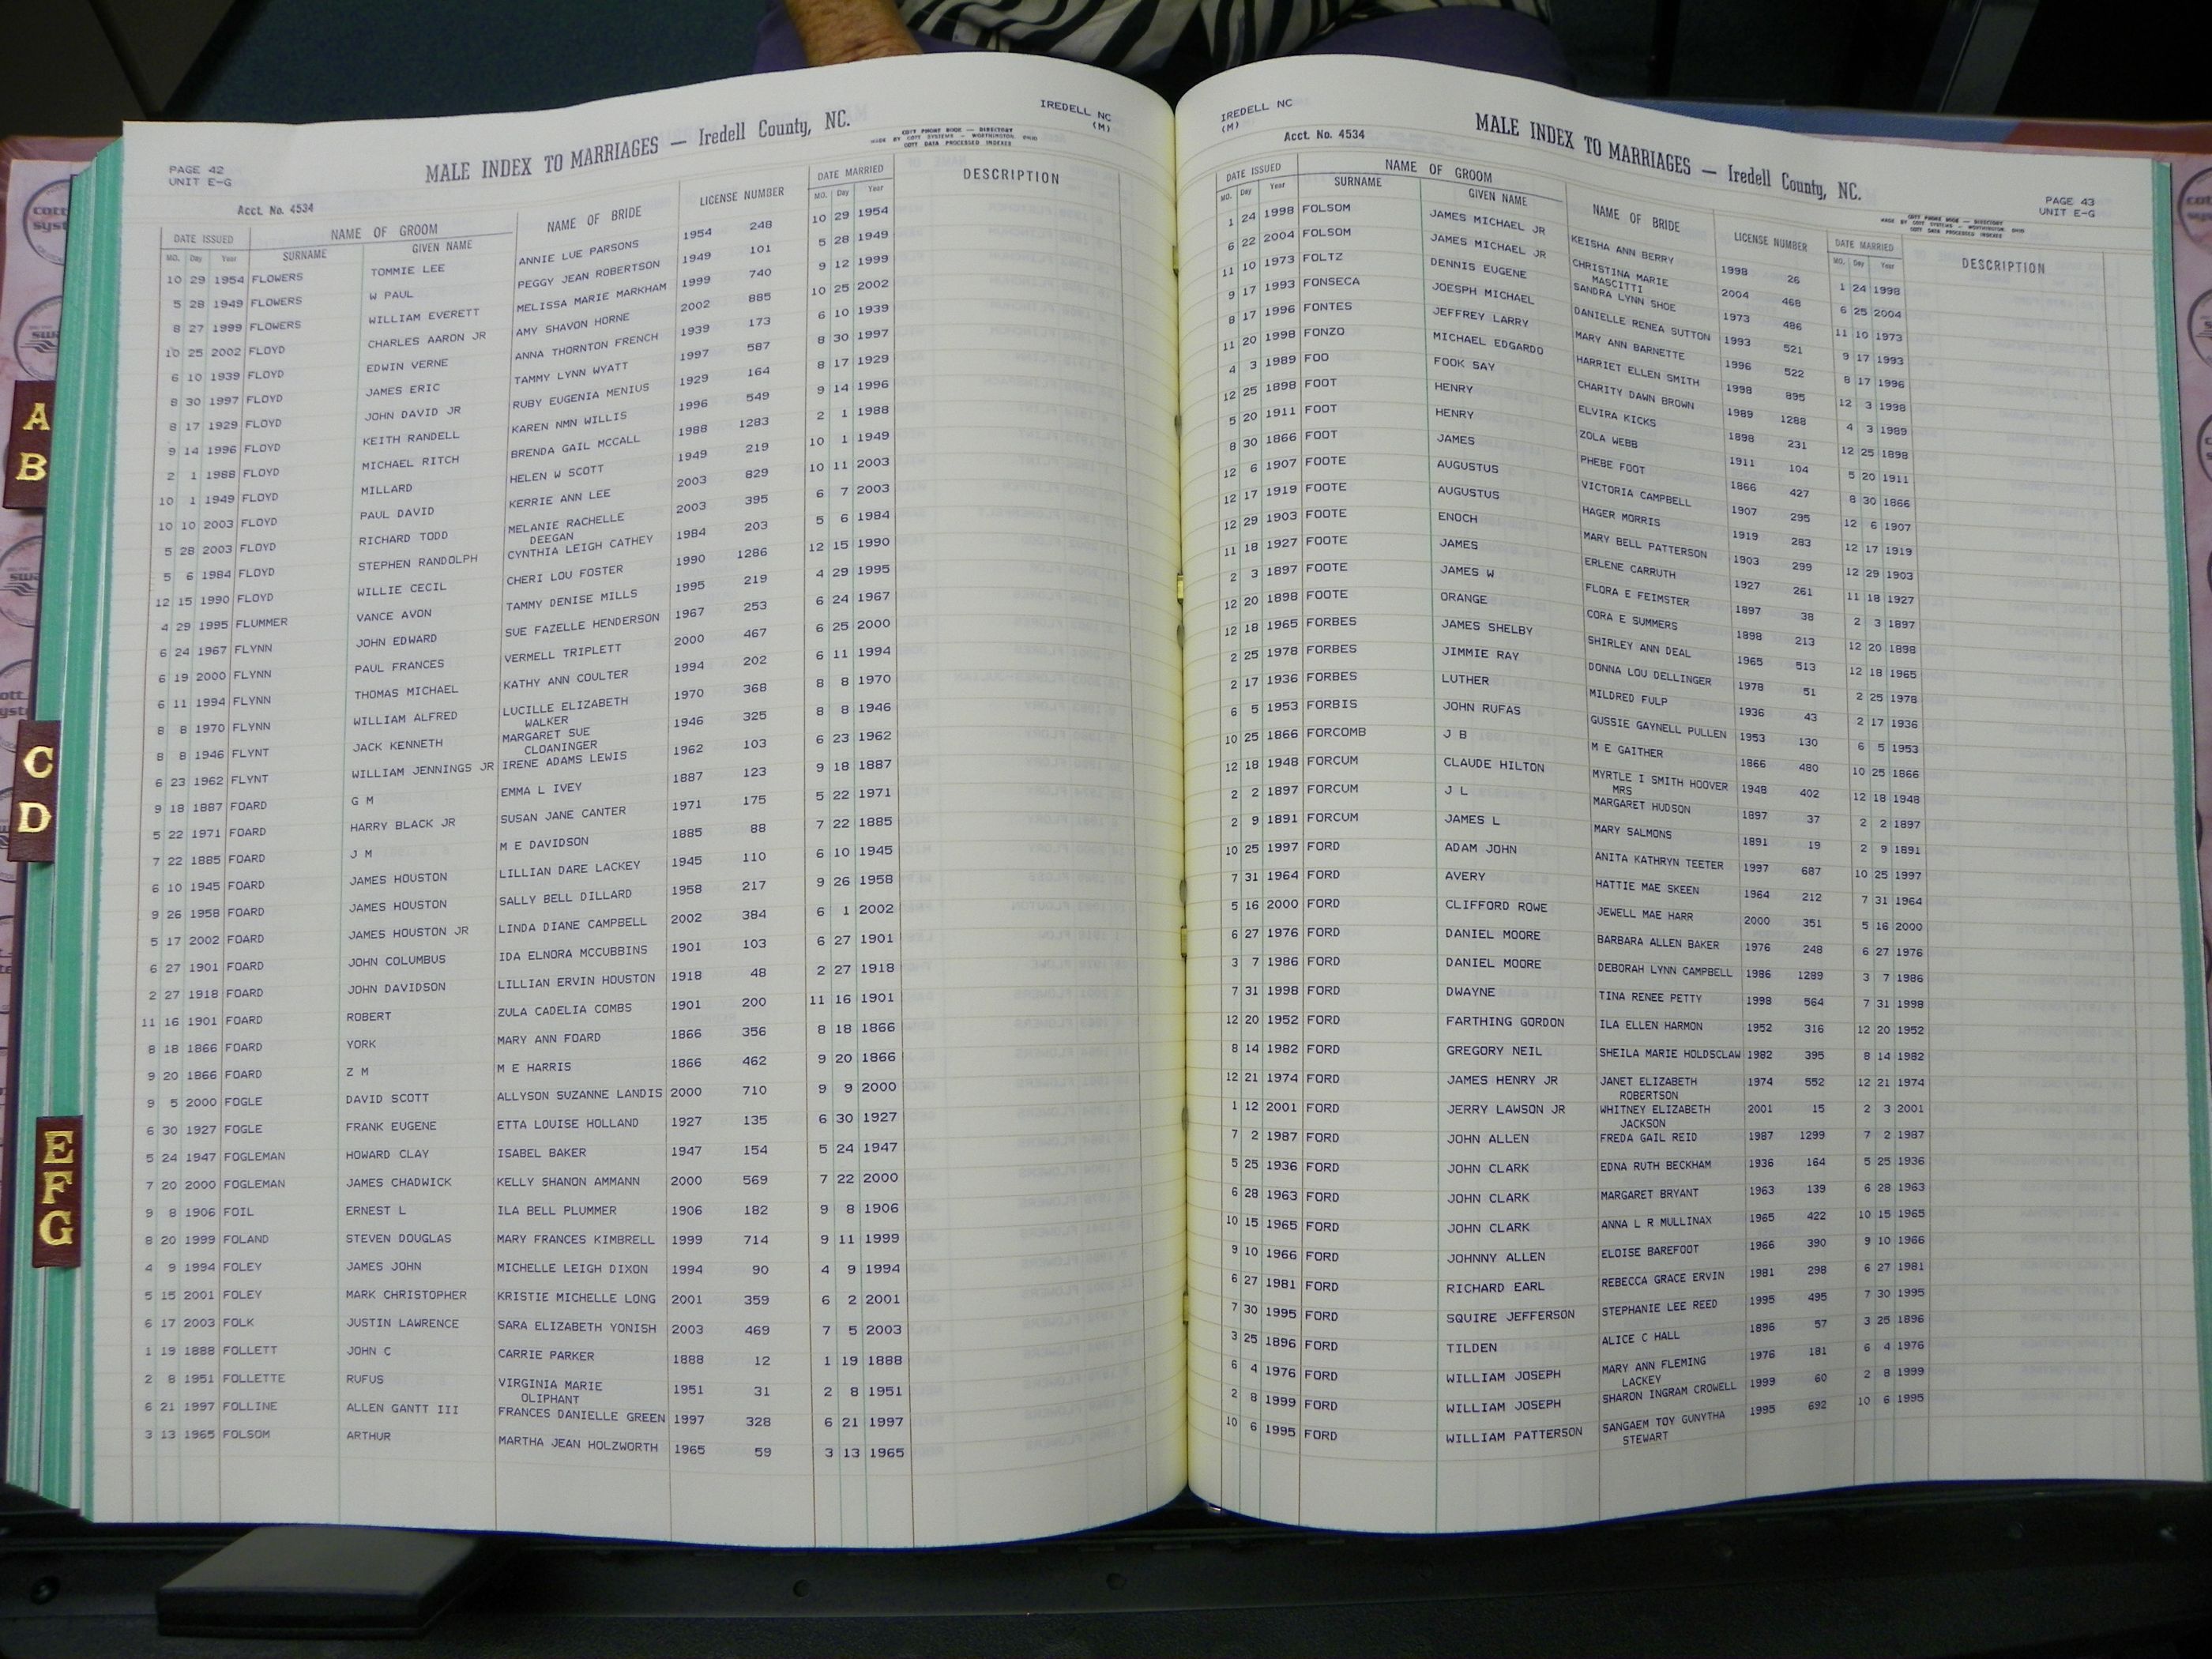 IREDELL NC
(M)
PAGE 42
UNIT E-G
MALE INDEX TO MARRIAGES — Iredell County, NC.
COTT PHONE BOOK — DIRECTORY
MADE BY COTT SYSTEMS — WORTHINGTON, OHIO
COTT DATA PROCESSED INDEXES
Acct. No. 4534
DATE ISSUED NAME OF GROOM NAME OF BRIDE LICENSE NUMBER DATE MARRIED DESCRIPTION
MO. Day Year SURNAME GIVEN NAME MO. Day Year
10 29 1954 FLOWERS TOMMIE LEE ANNIE LUE PARSONS 1954 248 10 29 1954
5 28 1949 FLOWERS W PAUL PEGGY JEAN ROBERTSON 1949 101 5 28 1949
8 27 1999 FLOWERS WILLIAM EVERETT MELISSA MARIE MARKHAM 1999 740 9 12 1999
10 25 2002 FLOYD CHARLES AARON JR AMY SHAVON HORNE 2002 885 10 25 2002
6 10 1939 FLOYD EDWIN VERNE ANNA THORNTON FRENCH 1939 173 6 10 1939
8 30 1997 FLOYD JAMES ERIC TAMMY LYNN WYATT 1997 587 8 30 1997
8 17 1929 FLOYD JOHN DAVID JR RUBY EUGENIA MENIUS 1929 164 8 17 1929
9 14 1996 FLOYD KEITH RANDELL KAREN NMN WILLIS 1996 549 9 14 1996
2 1 1988 FLOYD MICHAEL RITCH BRENDA GAIL MCCALL 1988 1283 2 1 1988
10 1 1949 FLOYD MILLARD HELEN W SCOTT 1949 219 10 1 1949
10 10 2003 FLOYD PAUL DAVID KERRIE ANN LEE 2003 829 10 11 2003
5 28 2003 FLOYD RICHARD TODD MELANIE RACHELLE 2003 395 6 7 2003
DEEGAN
5 6 1984 FLOYD STEPHEN RANDOLPH CYNTHIA LEIGH CATHEY 1984 203 5 6 1984
12 15 1990 FLOYD WILLIE CECIL CHERI LOU FOSTER 1990 1286 12 15 1990
4 29 1995 FLUMMER VANCE AVON TAMMY DENISE MILLS 1995 219 4 29 1995
6 24 1967 FLYNN JOHN EDWARD SUE FAZELLE HENDERSON 1967 253 6 24 1967
6 19 2000 FLYNN PAUL FRANCES VERMELL TRIPLETT 2000 467 6 25 2000
6 11 1994 FLYNN THOMAS MICHAEL KATHY ANN COULTER 1994 202 6 11 1994
8 8 1970 FLYNN WILLIAM ALFRED LUCILLE ELIZABETH 1970 368 8 8 1970
WALKER
8 8 1946 FLYNT JACK KENNETH MARGARET SUE 1946 325 8 8 1946
CLOANINGER
6 23 1962 FLYNT WILLIAM JENNINGS JR IRENE ADAMS LEWIS 1962 103 6 23 1962
9 18 1887 FOARD G M EMMA L IVEY 1887 123 9 18 1887
5 22 1971 FOARD HARRY BLACK JR SUSAN JANE CANTER 1971 175 5 22 1971
7 22 1885 FOARD J M M E DAVIDSON 1885 88 7 22 1885
6 10 1945 FOARD JAMES HOUSTON LILLIAN DARE LACKEY 1945 110 6 10 1945
9 26 1958 FOARD JAMES HOUSTON SALLY BELL DILLARD 1958 217 9 26 1958
5 17 2002 FOARD JAMES HOUSTON JR LINDA DIANE CAMPBELL 2002 384 6 1 2002
6 27 1901 FOARD JOHN COLUMBUS IDA ELNORA MCCUBBINS 1901 103 6 27 1901
2 27 1918 FOARD JOHN DAVIDSON LILLIAN ERVIN HOUSTON 1918 48 2 27 1918
11 16 1901 FOARD ROBERT ZULA CADELIA COMBS 1901 200 11 16 1901
8 18 1866 FOARD YORK MARY ANN FOARD 1866 356 8 18 1866
9 20 1866 FOARD Z M M E HARRIS 1866 462 9 20 1866
9 5 2000 FOGLE DAVID SCOTT ALLYSON SUZANNE LANDIS 2000 710 9 9 2000
6 30 1927 FOGLE FRANK EUGENE ETTA LOUISE HOLLAND 1927 135 6 30 1927
5 24 1947 FOGLEMAN HOWARD CLAY ISABEL BAKER 1947 154 5 24 1947
7 20 2000 FOGLEMAN JAMES CHADWICK KELLY SHANON AMMANN 2000 569 7 22 2000
9 8 1906 FOIL ERNEST L ILA BELL PLUMMER 1906 182 9 8 1906
8 20 1999 FOLAND STEVEN DOUGLAS MARY FRANCES KIMBRELL 1999 714 9 11 1999
4 9 1994 FOLEY JAMES JOHN MICHELLE LEIGH DIXON 1994 90 4 9 1994
5 15 2001 FOLEY MARK CHRISTOPHER KRISTIE MICHELLE LONG 2001 359 6 2 2001
6 17 2003 FOLK JUSTIN LAWRENCE SARA ELIZABETH YONISH 2003 469 7 5 2003
1 19 1888 FOLLETT JOHN C CARRIE PARKER 1888 12 1 19 1888
2 8 1951 FOLLETTE RUFUS VIRGINIA MARIE 1951 31 2 8 1951
OLIPHANT
6 21 1997 FOLLINE ALLEN GANTT III FRANCES DANIELLE GREEN 1997 328 6 21 1997
3 13 1965 FOLSOM ARTHUR MARTHA JEAN HOLZWORTH 1965 59 3 13 1965
IREDELL NC
(M)
Acct. No. 4534
MALE INDEX TO MARRIAGES — Iredell County, NC.
COTT PHONE BOOK — DIRECTORY
MADE BY COTT SYSTEMS — WORTHINGTON, OHIO
COTT DATA PROCESSED INDEXES
PAGE 43
UNIT E-G
DATE ISSUED NAME OF GROOM NAME OF BRIDE LICENSE NUMBER DATE MARRIED DESCRIPTION
MO. Day Year SURNAME GIVEN NAME MO. Day Year
1 24 1998 FOLSOM JAMES MICHAEL JR KEISHA ANN BERRY 1998 26 1 24 1998
6 22 2004 FOLSOM JAMES MICHAEL JR CHRISTINA MARIE 2004 468 6 25 2004
MASCITTI
11 10 1973 FOLTZ DENNIS EUGENE SANDRA LYNN SHOE 1973 486 11 10 1973
9 17 1993 FONSECA JOESPH MICHAEL DANIELLE RENEA SUTTON 1993 521 9 17 1993
8 17 1996 FONTES JEFFREY LARRY MARY ANN BARNETTE 1996 522 8 17 1996
11 20 1998 FONZO MICHAEL EDGARDO HARRIET ELLEN SMITH 1998 895 12 3 1998
4 3 1989 FOO FOOK SAY CHARITY DAWN BROWN 1989 1288 4 3 1989
12 25 1898 FOOT HENRY ELVIRA KICKS 1898 231 12 25 1898
5 20 1911 FOOT HENRY ZOLA WEBB 1911 104 5 20 1911
8 30 1866 FOOT JAMES PHEBE FOOT 1866 427 8 30 1866
12 6 1907 FOOTE AUGUSTUS VICTORIA CAMPBELL 1907 295 12 6 1907
12 17 1919 FOOTE AUGUSTUS HAGER MORRIS 1919 283 12 17 1919
12 29 1903 FOOTE ENOCH MARY BELL PATTERSON 1903 299 12 29 1903
11 18 1927 FOOTE JAMES ERLENE CARRUTH 1927 261 11 18 1927
2 3 1897 FOOTE JAMES W FLORA E FEIMSTER 1897 38 2 3 1897
12 20 1898 FOOTE ORANGE CORA E SUMMERS 1898 213 12 20 1898
12 18 1965 FORBES JAMES SHELBY SHIRLEY ANN DEAL 1965 513 12 18 1965
2 25 1978 FORBES JIMMIE RAY DONNA LOU DELLINGER 1978 51 2 25 1978
2 17 1936 FORBES LUTHER MILDRED FULP 1936 43 2 17 1936
6 5 1953 FORBIS JOHN RUFAS GUSSIE GAYNELL PULLEN 1953 130 6 5 1953
10 25 1866 FORCOMB J B M E GAITHER 1866 480 10 25 1866
12 18 1948 FORCUM CLAUDE HILTON MYRTLE I SMITH HOOVER 1948 402 12 18 1948
MRS
2 2 1897 FORCUM J L MARGARET HUDSON 1897 37 2 2 1897
2 9 1891 FORCUM JAMES L MARY SALMONS 1891 19 2 9 1891
10 25 1997 FORD ADAM JOHN ANITA KATHRYN TEETER 1997 687 10 25 1997
7 31 1964 FORD AVERY HATTIE MAE SKEEN 1964 212 7 31 1964
5 16 2000 FORD CLIFFORD ROWE JEWELL MAE HARR 2000 351 5 16 2000
6 27 1976 FORD DANIEL MOORE BARBARA ALLEN BAKER 1976 248 6 27 1976
3 7 1986 FORD DANIEL MOORE DEBORAH LYNN CAMPBELL 1986 1289 3 7 1986
7 31 1998 FORD DWAYNE TINA RENEE PETTY 1998 564 7 31 1998
12 20 1952 FORD FARTHING GORDON ILA ELLEN HARMON 1952 316 12 20 1952
8 14 1982 FORD GREGORY NEIL SHEILA MARIE HOLDSCLAW 1982 395 8 14 1982
12 21 1974 FORD JAMES HENRY JR JANET ELIZABETH 1974 552 12 21 1974
ROBERTSON
1 12 2001 FORD JERRY LAWSON JR WHITNEY ELIZABETH 2001 15 2 3 2001
JACKSON
7 2 1987 FORD JOHN ALLEN FREDA GAIL REID 1987 1299 7 2 1987
5 25 1936 FORD JOHN CLARK EDNA RUTH BECKHAM 1936 164 5 25 1936
6 28 1963 FORD JOHN CLARK MARGARET BRYANT 1963 139 6 28 1963
10 15 1965 FORD JOHN CLARK ANNA L R MULLINAX 1965 422 10 15 1965
9 10 1966 FORD JOHNNY ALLEN ELOISE BAREFOOT 1966 390 9 10 1966
6 27 1981 FORD RICHARD EARL REBECCA GRACE ERVIN 1981 298 6 27 1981
7 30 1995 FORD SQUIRE JEFFERSON STEPHANIE LEE REED 1995 495 7 30 1995
3 25 1896 FORD TILDEN ALICE C HALL 1896 57 3 25 1896
6 4 1976 FORD WILLIAM JOSEPH MARY ANN FLEMING 1976 181 6 4 1976
LACKEY
2 8 1999 FORD WILLIAM JOSEPH SHARON INGRAM CROWELL 1999 60 2 8 1999
10 6 1995 FORD WILLIAM PATTERSON SANGAEM TOY GUNYTHA 1995 692 10 6 1995
STEWART
A
B
C
D
E
F
G